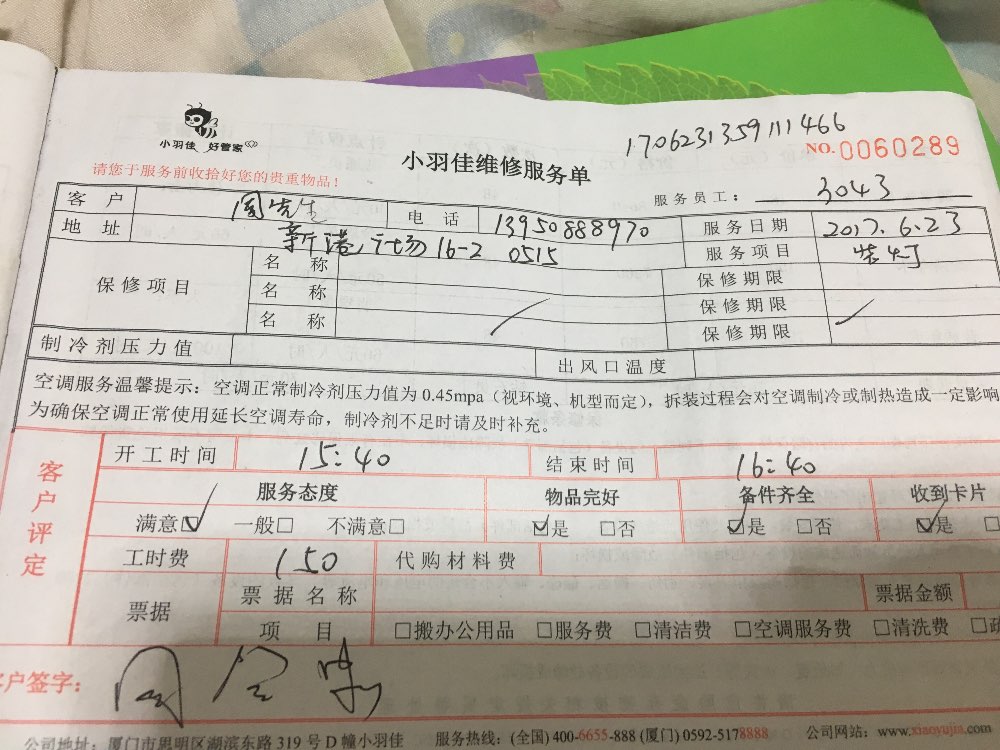 小羽佳 好管家
170623135911​1466
NO.0060289
小羽佳维修服务单
请您于服务前收拾好您的贵重物品！
服务员工： 3043
客户 周先生 电话 13950888970 服务日期 2017.6.23
地址 新港广场16-2 0515 服务项目 装灯
保修项目 名称 保修期限
名称 保修期限
名称 保修期限
制冷剂压力值 出风口温度
空调服务温馨提示：空调正常制冷剂压力值为 0.45mpa（视环境、机型而定），拆装过程会对空调制冷或制热造成一定影响
为确保空调正常使用延长空调寿命，制冷剂不足时请及时补充。
客户评定
开工时间 15:40 结束时间 16:40
服务态度 物品完好 备件齐全 收到卡片
满意☑ 一般□ 不满意□ ☑是 □否 ☑是 □否 ☑是 □
工时费 150 代购材料费
票据 票据名称 票据金额
项目 □搬办公用品 □服务费 □清洁费 □空调服务费 □清洗费 □
客户签字： 周
公司地址：厦门市思明区湖滨东路 319 号 D 幢小羽佳 服务热线：(全国) 400-6655-888 (厦门) 0592-5178888 公司网站：www.xiaoyujia.com